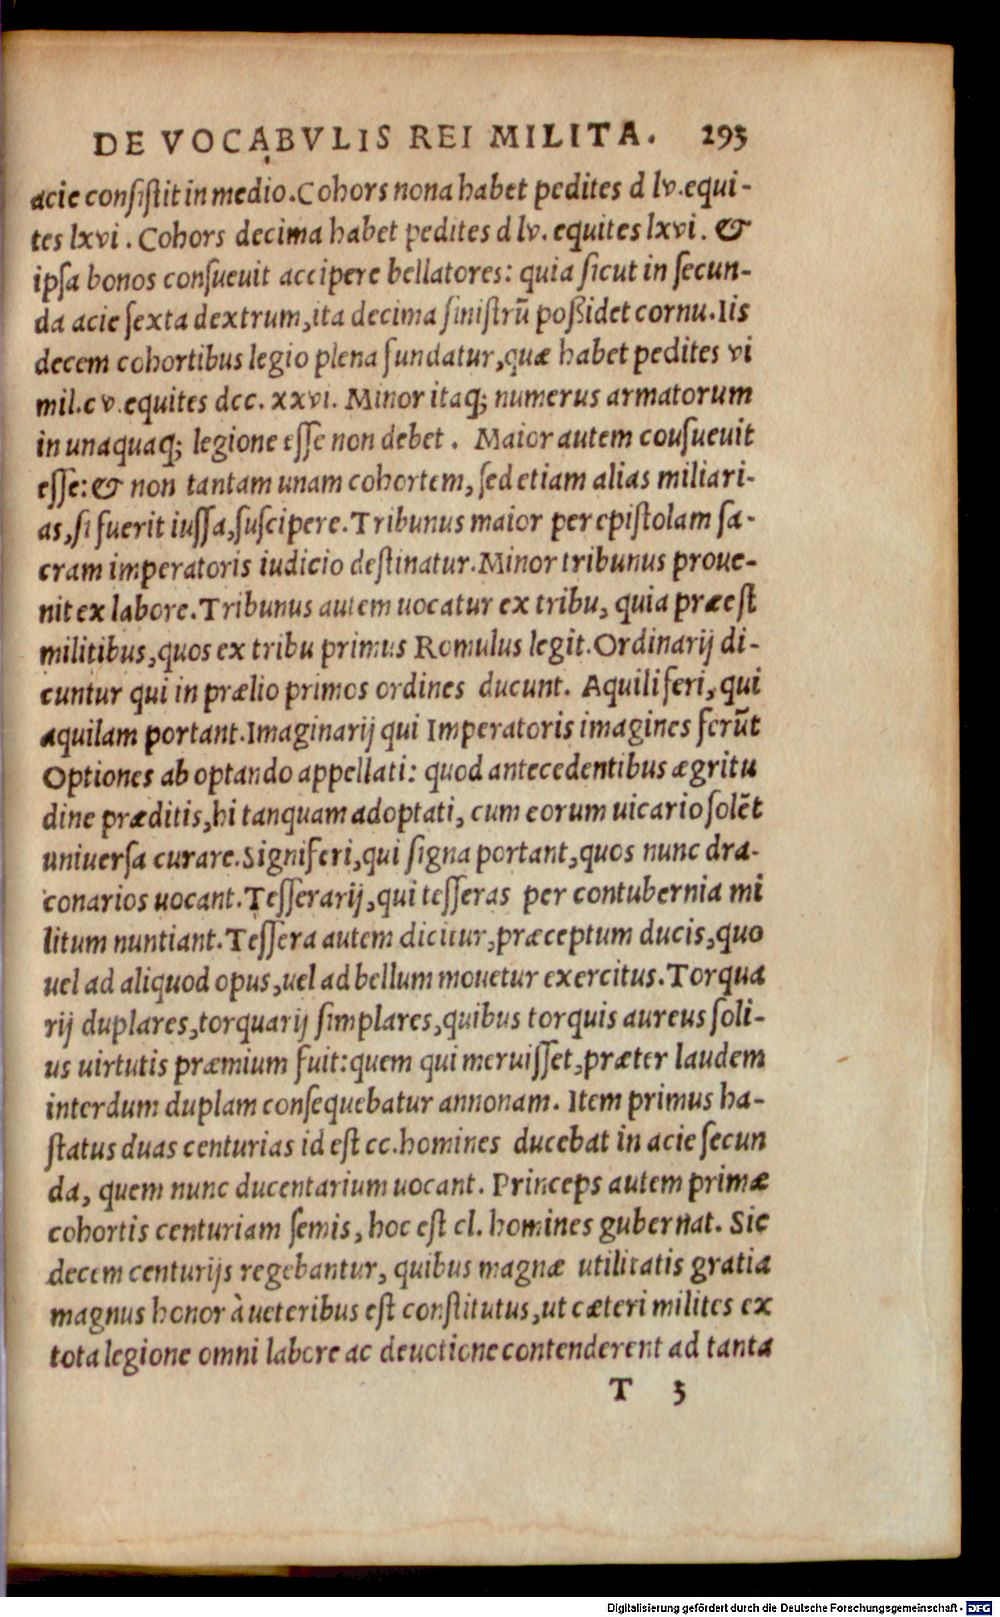 DE VOCABVLIS REI MILITA. 293
acie consistit in medio. Cohors nona habet pedites d lv. equi-
tes lxvi. Cohors decima habet pedites d lv. equites lxvi. &
ipsa bonos consueuit accipere bellatores: quia sicut in secun-
da acie sexta dextrum, ita decima sinistrū possidet cornu. Iis
decem cohortibus legio plena fundatur, quæ habet pedites vi
mil. c v. equites dcc. xxvi. Minor itaq; numerus armatorum
in unaquaq; legione esse non debet. Maior autem cousueuit
esse: & non tantam unam cohortem, sed etiam alias miliari-
as, si fuerit iussa, suscipere. Tribunus maior per epistolam sa-
cram imperatoris iudicio destinatur. Minor tribunus proue-
nit ex labore. Tribunus autem uocatur ex tribu, quia præest
militibus, quos ex tribu primus Romulus legit. Ordinarij di-
cuntur qui in prælio primos ordines ducunt. Aquiliferi, qui
aquilam portant. Imaginarij qui Imperatoris imagines ferūt
Optiones ab optando appellati: quod antecedentibus ægritu
dine præditis, hi tanquam adoptati, cum eorum uicario solēt
uniuersa curare. Signiferi, qui signa portant, quos nunc dra-
conarios uocant. Tesserarij, qui tesseras per contubernia mi
litum nuntiant. Tessera autem dicitur, præceptum ducis, quo
uel ad aliquod opus, uel ad bellum mouetur exercitus. Torqua
rij duplares, torquarij simplares, quibus torquis aureus soli-
us uirtutis præmium fuit: quem qui meruisset, præter laudem
interdum duplam consequebatur annonam. Item primus ha-
status duas centurias id est cc. homines ducebat in acie secun
da, quem nunc ducentarium uocant. Princeps autem primæ
cohortis centuriam semis, hoc est cl. homines gubernat. Sic
decem centurijs regebantur, quibus magnæ utilitatis gratia
magnus honor à ueteribus est constitutus, ut cæteri milites ex
tota legione omni labore ac deuotione contenderent ad tanta
T 3
Digitalisierung gefördert durch die Deutsche Forschungsgemeinschaft - DFG